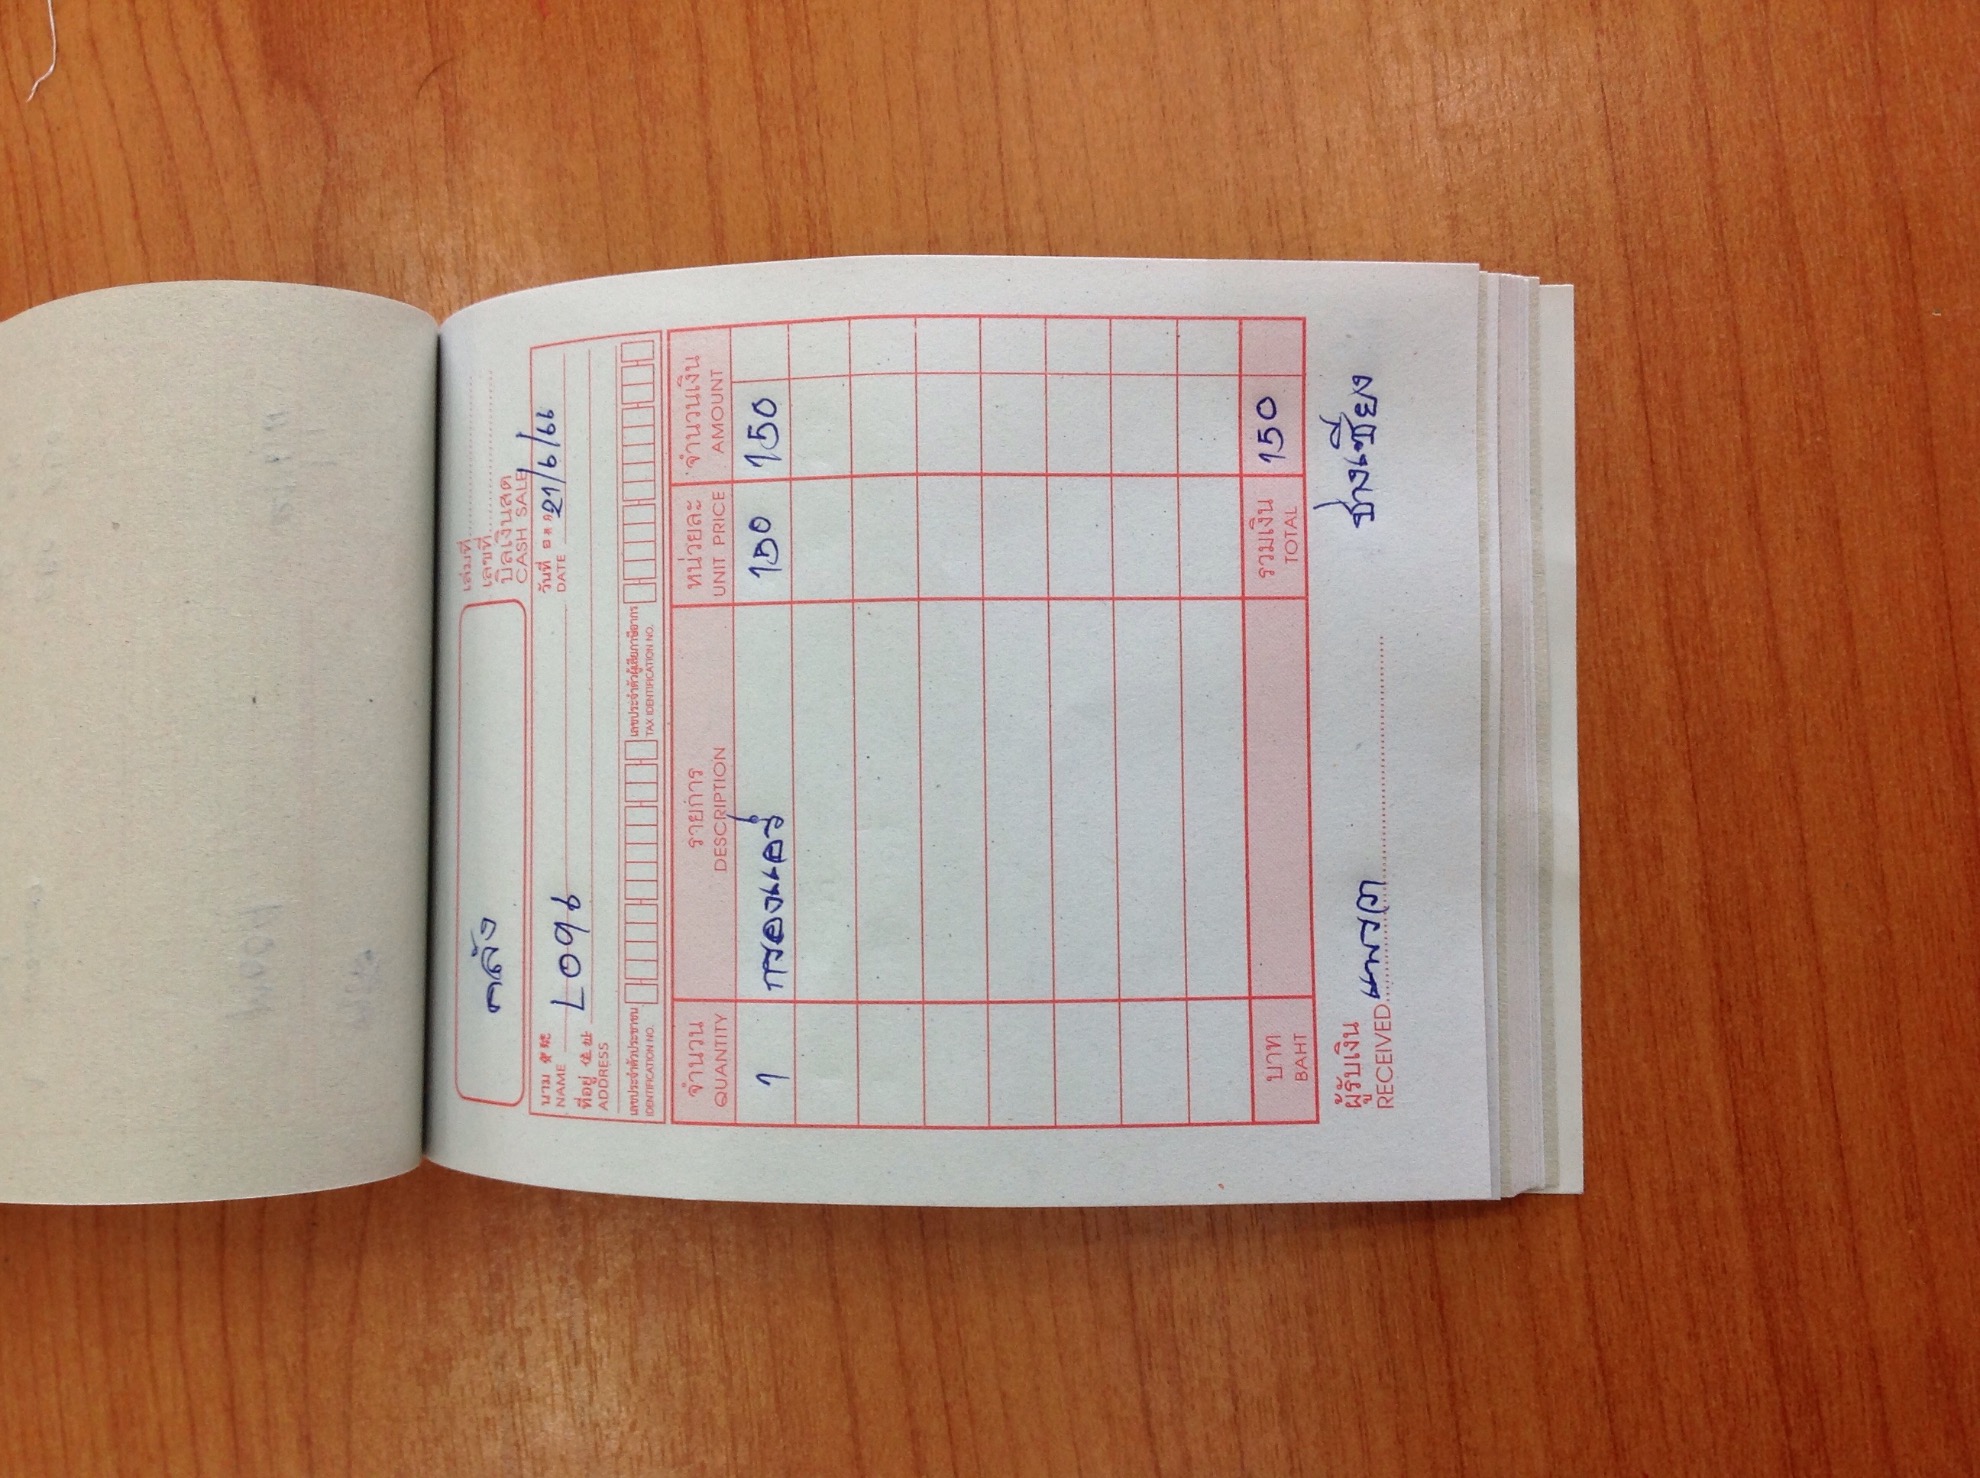 คลัง
เล่มที่
เลขที่
บิลเงินสด
CASH SALE
นาม L096 วันที่ 21/6/66
NAME DATE
ที่อยู่
ADDRESS
เลขประจำตัวประชาชน เลขประจำตัวผู้เสียภาษีอากร
IDENTIFICATION NO. TAX IDENTIFICATION NO.
จำนวน รายการ หน่วยละ จำนวนเงิน
QUANTITY DESCRIPTION UNIT PRICE AMOUNT
1 กรองแอร์ 150 150
บาท รวมเงิน 150
BAHT TOTAL
ผู้รับเงิน ช่างเซี่ยง
RECEIVED แพรวา